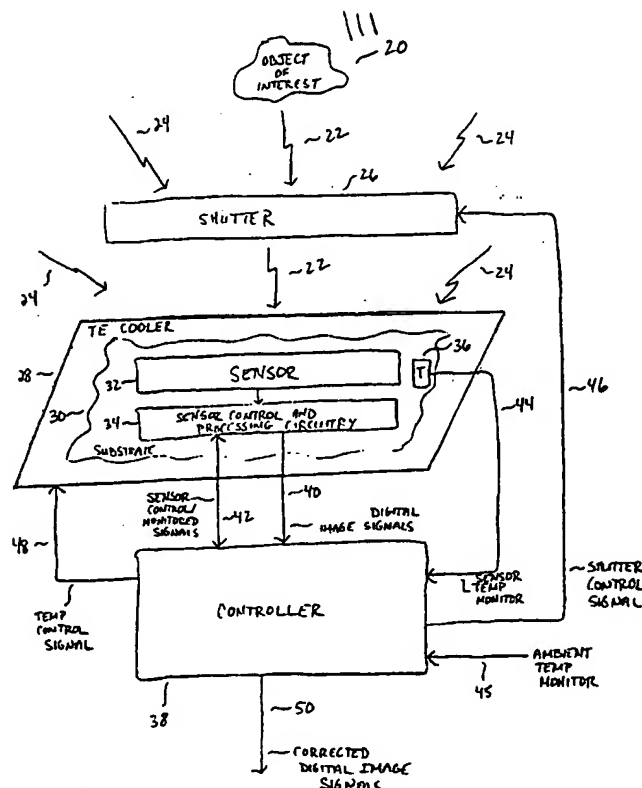 OBJECT
OF
INTEREST
20
24
22
24
26
SHUTTER
24
22
24
TE COOLER
36
28
30
32
SENSOR
T
34
SENSOR CONTROL AND
PROCESSING CIRCUITRY
SUBSTRATE
44
46
SENSOR
CONTROL/
MONITORED
SIGNALS
42
40
DIGITAL
IMAGE SIGNALS
48
TEMP
CONTROL
SIGNAL
CONTROLLER
SENSOR
TEMP
MONITOR
SHUTTER
CONTROL
SIGNAL
AMBIENT
TEMP
MONITOR
45
38
50
CORRECTED
DIGITAL IMAGE
SIGNALS